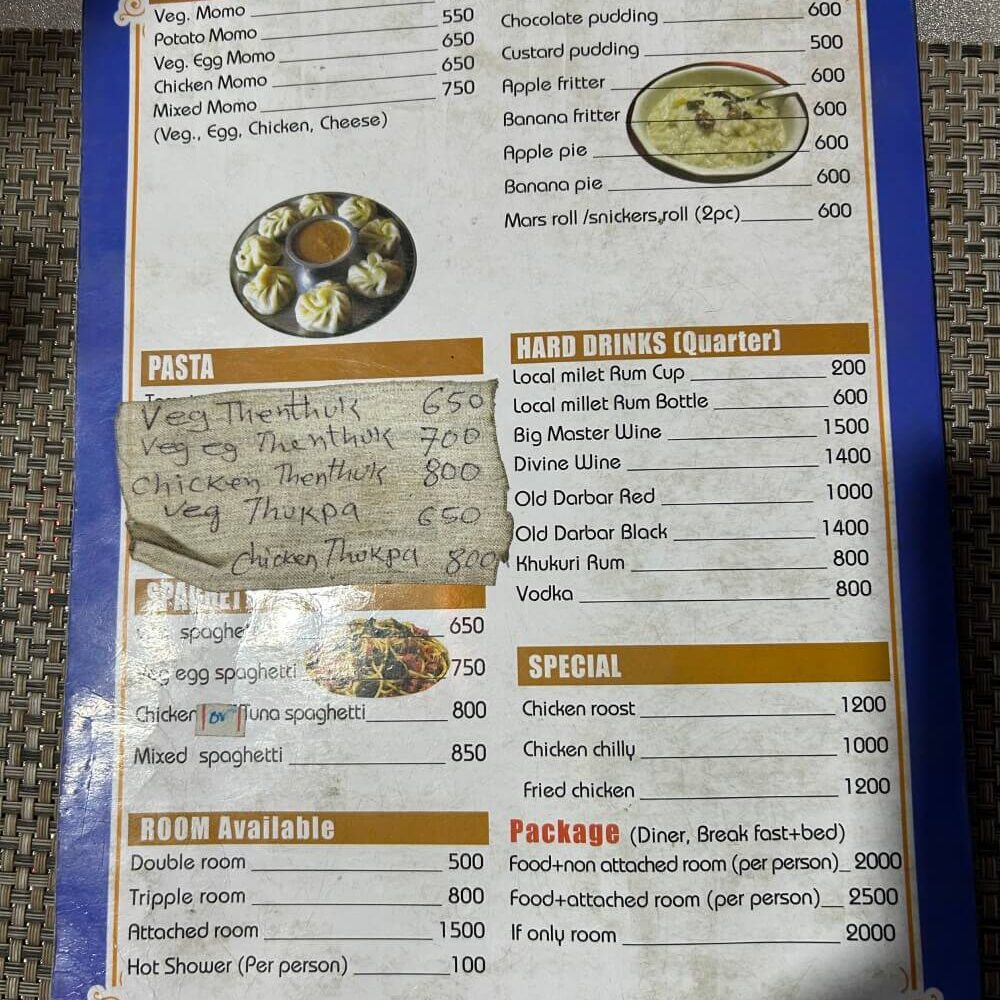 Veg. Momo
Potato Momo 550
Veg. Egg Momo 650
Chicken Momo 650
Mixed Momo 750
(Veg., Egg, Chicken, Cheese)
PASTA
Veg Thenthuk 650
Veg eg Thenthuk 700
Chicken Thenthuk 800
Veg Thukpa 650
Chicken Thukpa 800
spaghe 650
Veg egg spaghetti 750
Chicken or Tuna spaghetti 800
Mixed spaghetti 850
ROOM Available
Double room 500
Tripple room 800
Attached room 1500
Hot Shower (Per person) 100
Chocolate pudding 600
Custard pudding 500
Apple fritter 600
Banana fritter 600
Apple pie 600
Banana pie 600
Mars roll /snickers,roll (2pc) 600
HARD DRINKS (Quarter)
Local milet Rum Cup 200
Local millet Rum Bottle 600
Big Master Wine 1500
Divine Wine 1400
Old Darbar Red 1000
Old Darbar Black 1400
Khukuri Rum 800
Vodka 800
SPECIAL
Chicken roost 1200
Chicken chilly 1000
Fried chicken 1200
Package (Diner, Break fast+bed)
Food+non attached room (per person) 2000
Food+attached room (per person) 2500
If only room 2000